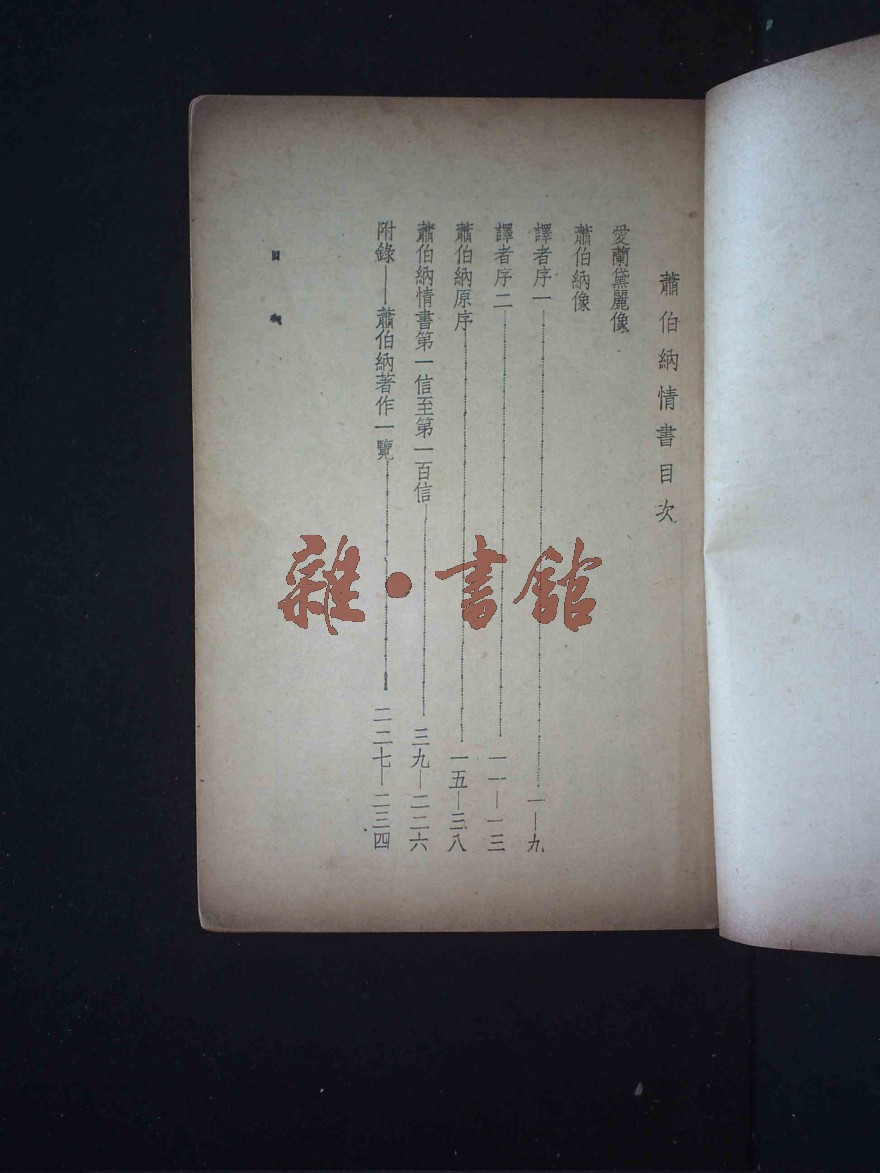 蕭伯納情書目次
愛蘭黛麗像
蕭伯納像
譯者序一……一—九
譯者序二……一一—一三
蕭伯納原序……一五—三八
蕭伯納情書第一信至第一百信……三九—二二六
附錄——蕭伯納著作一覽……二二七—二三四
目次
雜·書館